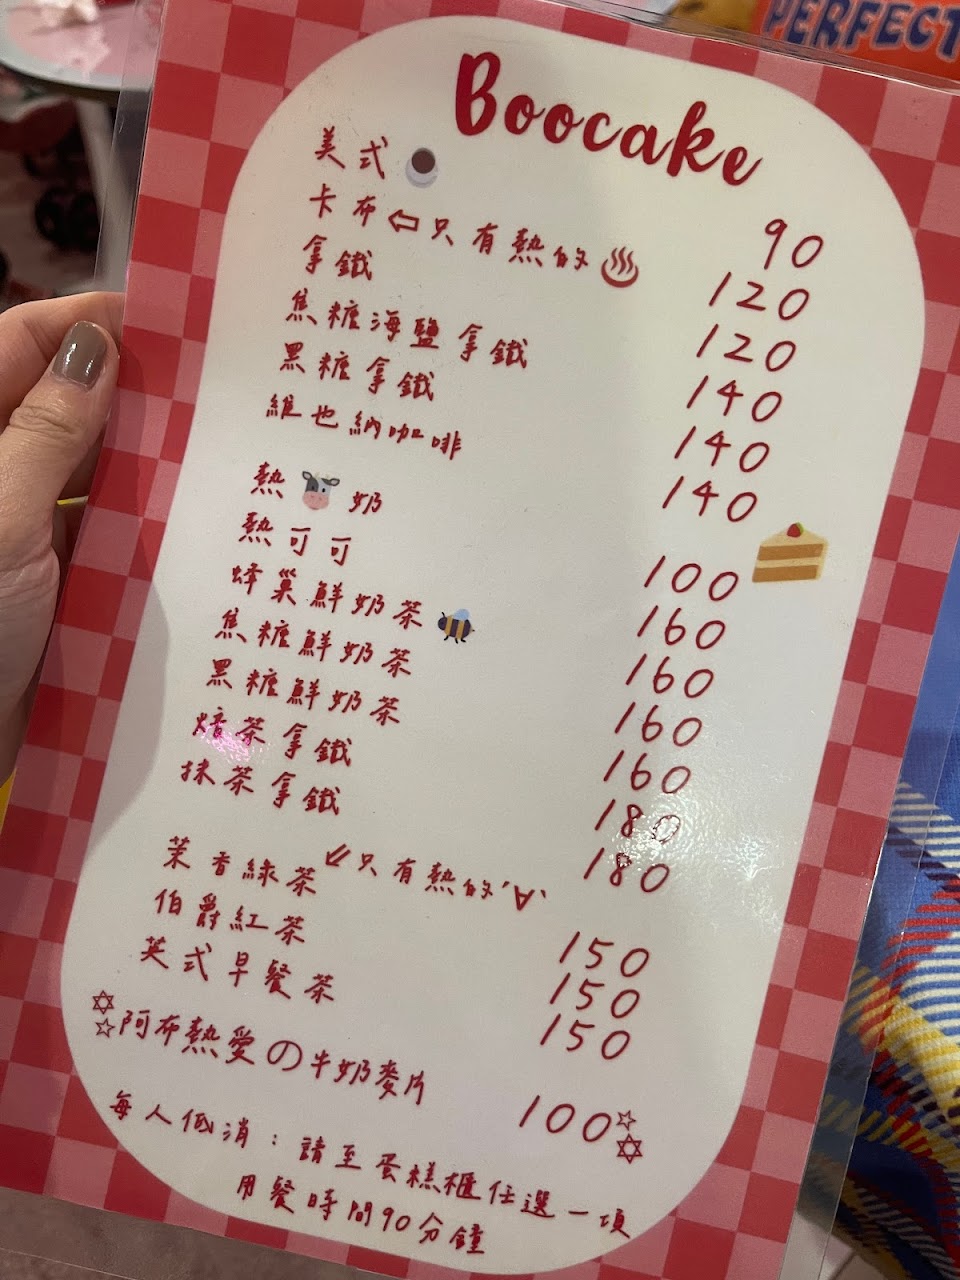 PERFECT
Boocake
美式 90
卡布⇦只有熱的♨ 120
拿鐵 120
焦糖海鹽拿鐵 140
黑糖拿鐵 140
維也納咖啡 140
熱🐮奶 100
熱可可 160
蜂巢鮮奶茶 160
焦糖鮮奶茶 160
黑糖鮮奶茶 160
焙茶拿鐵 180
抹茶拿鐵 180
茉香綠茶 ↙只有熱的'∀' 150
伯爵紅茶 150
英式早餐茶 150
✡☆阿布熱愛の牛奶麥片 100☆✡
每人低消：請至蛋糕櫃任選一項
用餐時間90分鐘